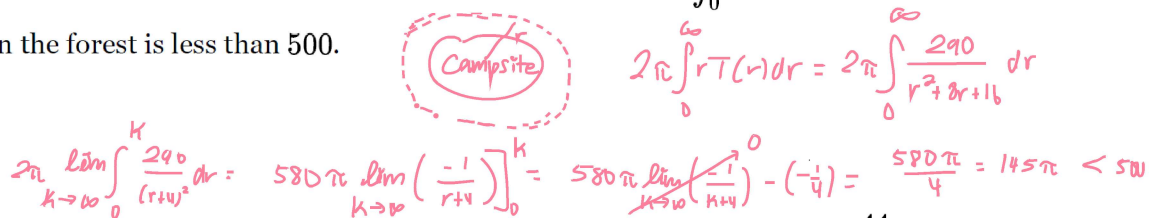 n the forest is less than 500.
Campsite r
2π ∫₀^∞ rT(r)dr = 2π ∫₀^∞ 290/(r²+8r+16) dr
2π lim k→∞ ∫₀^k 290/(r+4)² dr = 580π lim k→∞ (-1/(r+4))]₀^k = 580π lim k→∞ (-1/(k+4)) 0 - (-1/4) = 580π/4 = 145π < 500